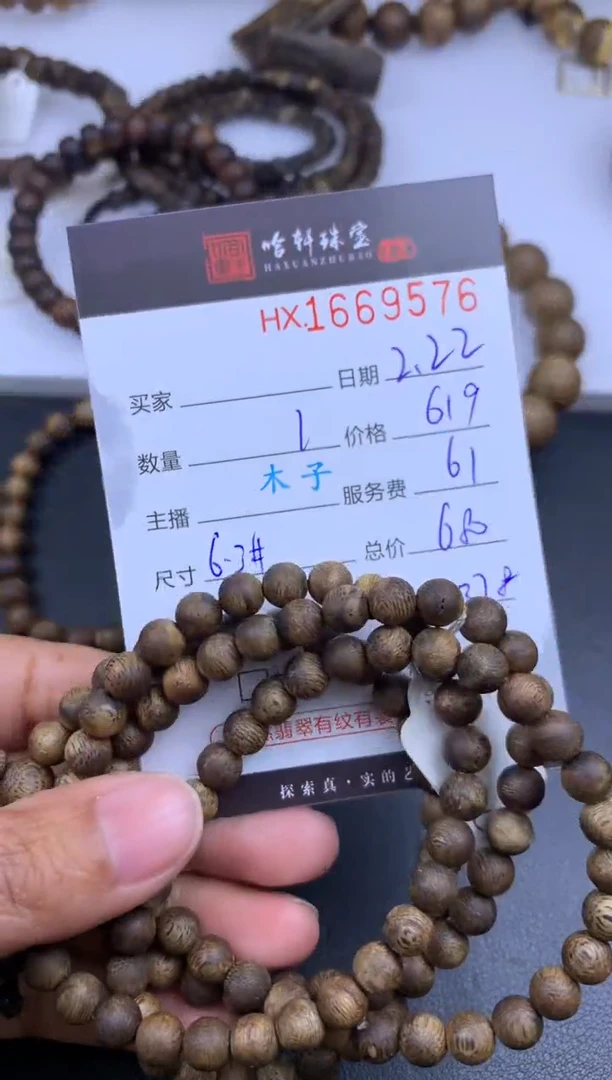 哈轩珠宝
HAXUANZHUBAO
HX.1669576
买家 日期 2.22
数量 1 价格 619
木子
主播 服务费 61
尺寸 6.3# 总价 680
翡翠有纹有
探索真·实的